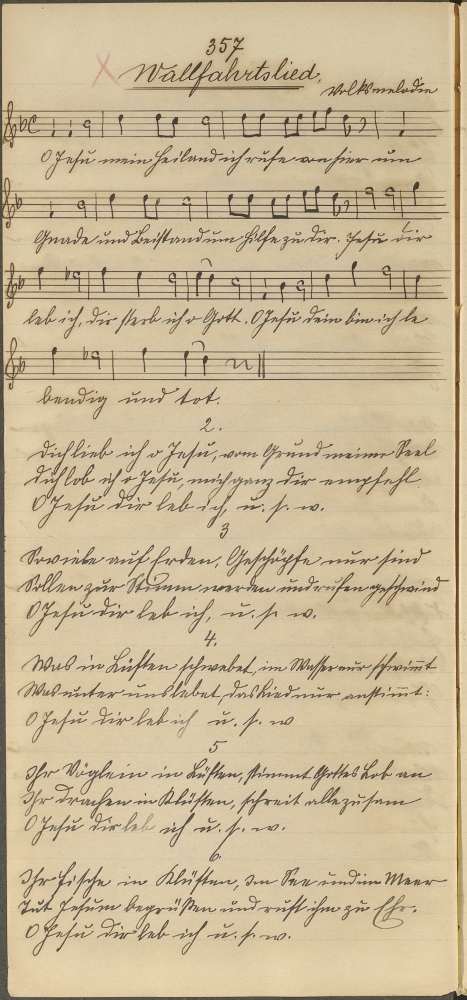 357
Wallfahrtslied.
Volksmelodie
O Jesu mein Heiland ich rufe von hier um
Gnade und Beistand um Hilfe zu dir. Jesu dir
leb ich, dir sterb ich o Gott. O Jesu dein bin ich le
bendig und tot.
2.
Dich lieb ich o Jesu, vom Grund meiner Seel
Dich lob ich o Jesu, mich ganz dir empfehl
O Jesu dir leb ich, u. s. w.
3
Soviele auf Erden, Geschöpfe nur sind
Sollen zur Stimm werden und rufen geschwind
O Jesu dir leb ich, u. s. w.
4.
Was in Lüften schwebet, im Wasser nur schwim̅t
Was unter uns lebet, das Lied nur anstim̅t:
O Jesu dir leb ich u. s. w
5
Ihr Vöglein in Lüften, stimmt Gottes Lob an
Ihr Drachen in Klüften, schreit alle zusam
O Jesu dir leb ich u. s. w.
6.
Ihr Fische in Klüften, im See und im Meer
Tut Jesum begrüßen und ruft ihm zu Ehr.
O Jesu dir leb ich u. s. w.